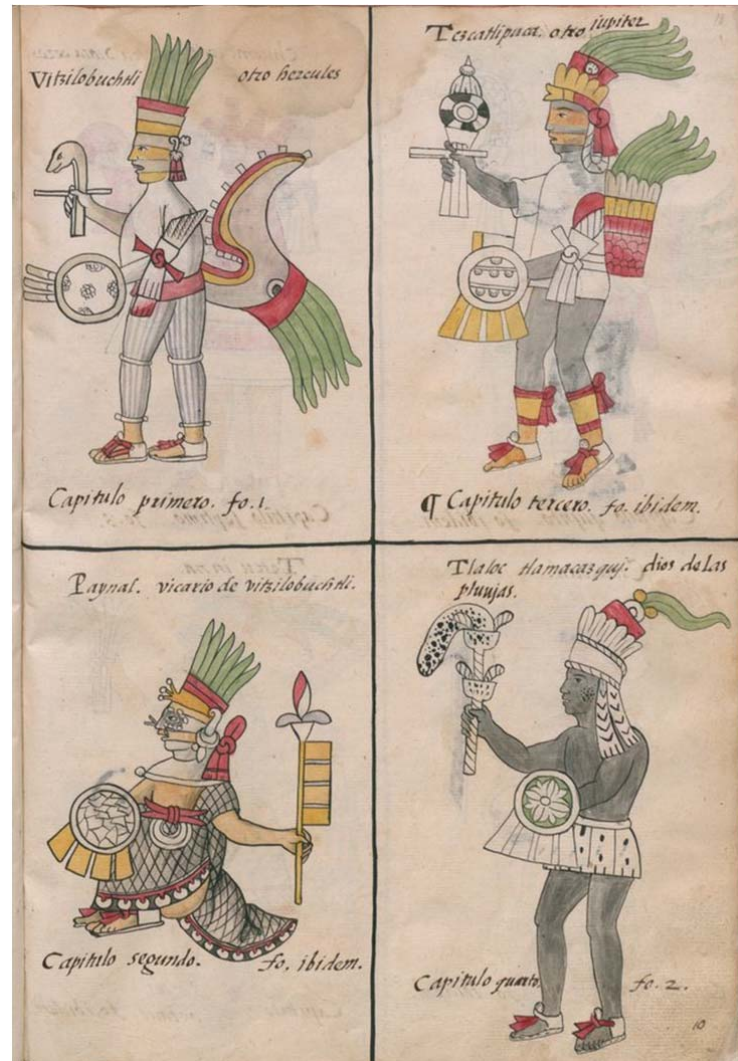 Vitzilobuchtli otro hercules
Capitulo primero. fo. 1
Tezcatlipuca. otro jupiter
¶ Capitulo tercero. fo. ibidem.
Paynal. vicario de vitzilobuchtli.
Capitulo segundo. fo. ibidem.
Tlaloc tlamacazquj. dios de las
pluujas.
Capitulo quarto. fo. 2.
10